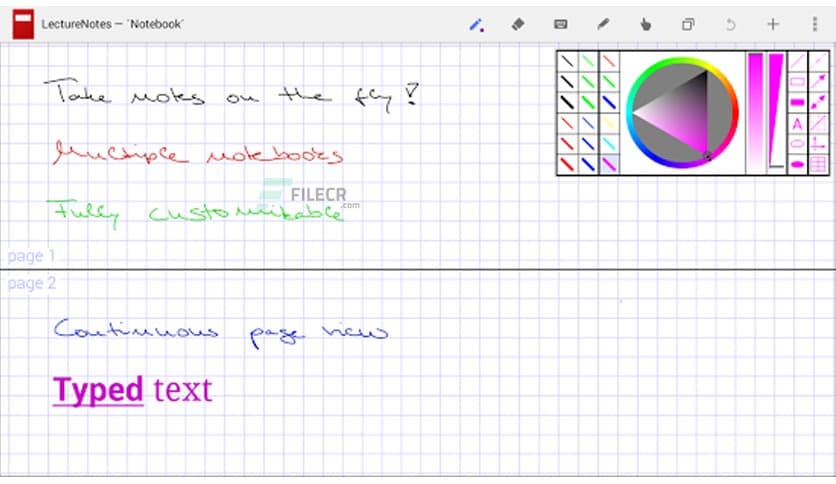 LectureNotes – ‘Notebook’
Take notes on the fly!
Multiple notebooks
FILECR
.com
Fully customizable
page 1
page 2
Continuous page view
Typed text
A